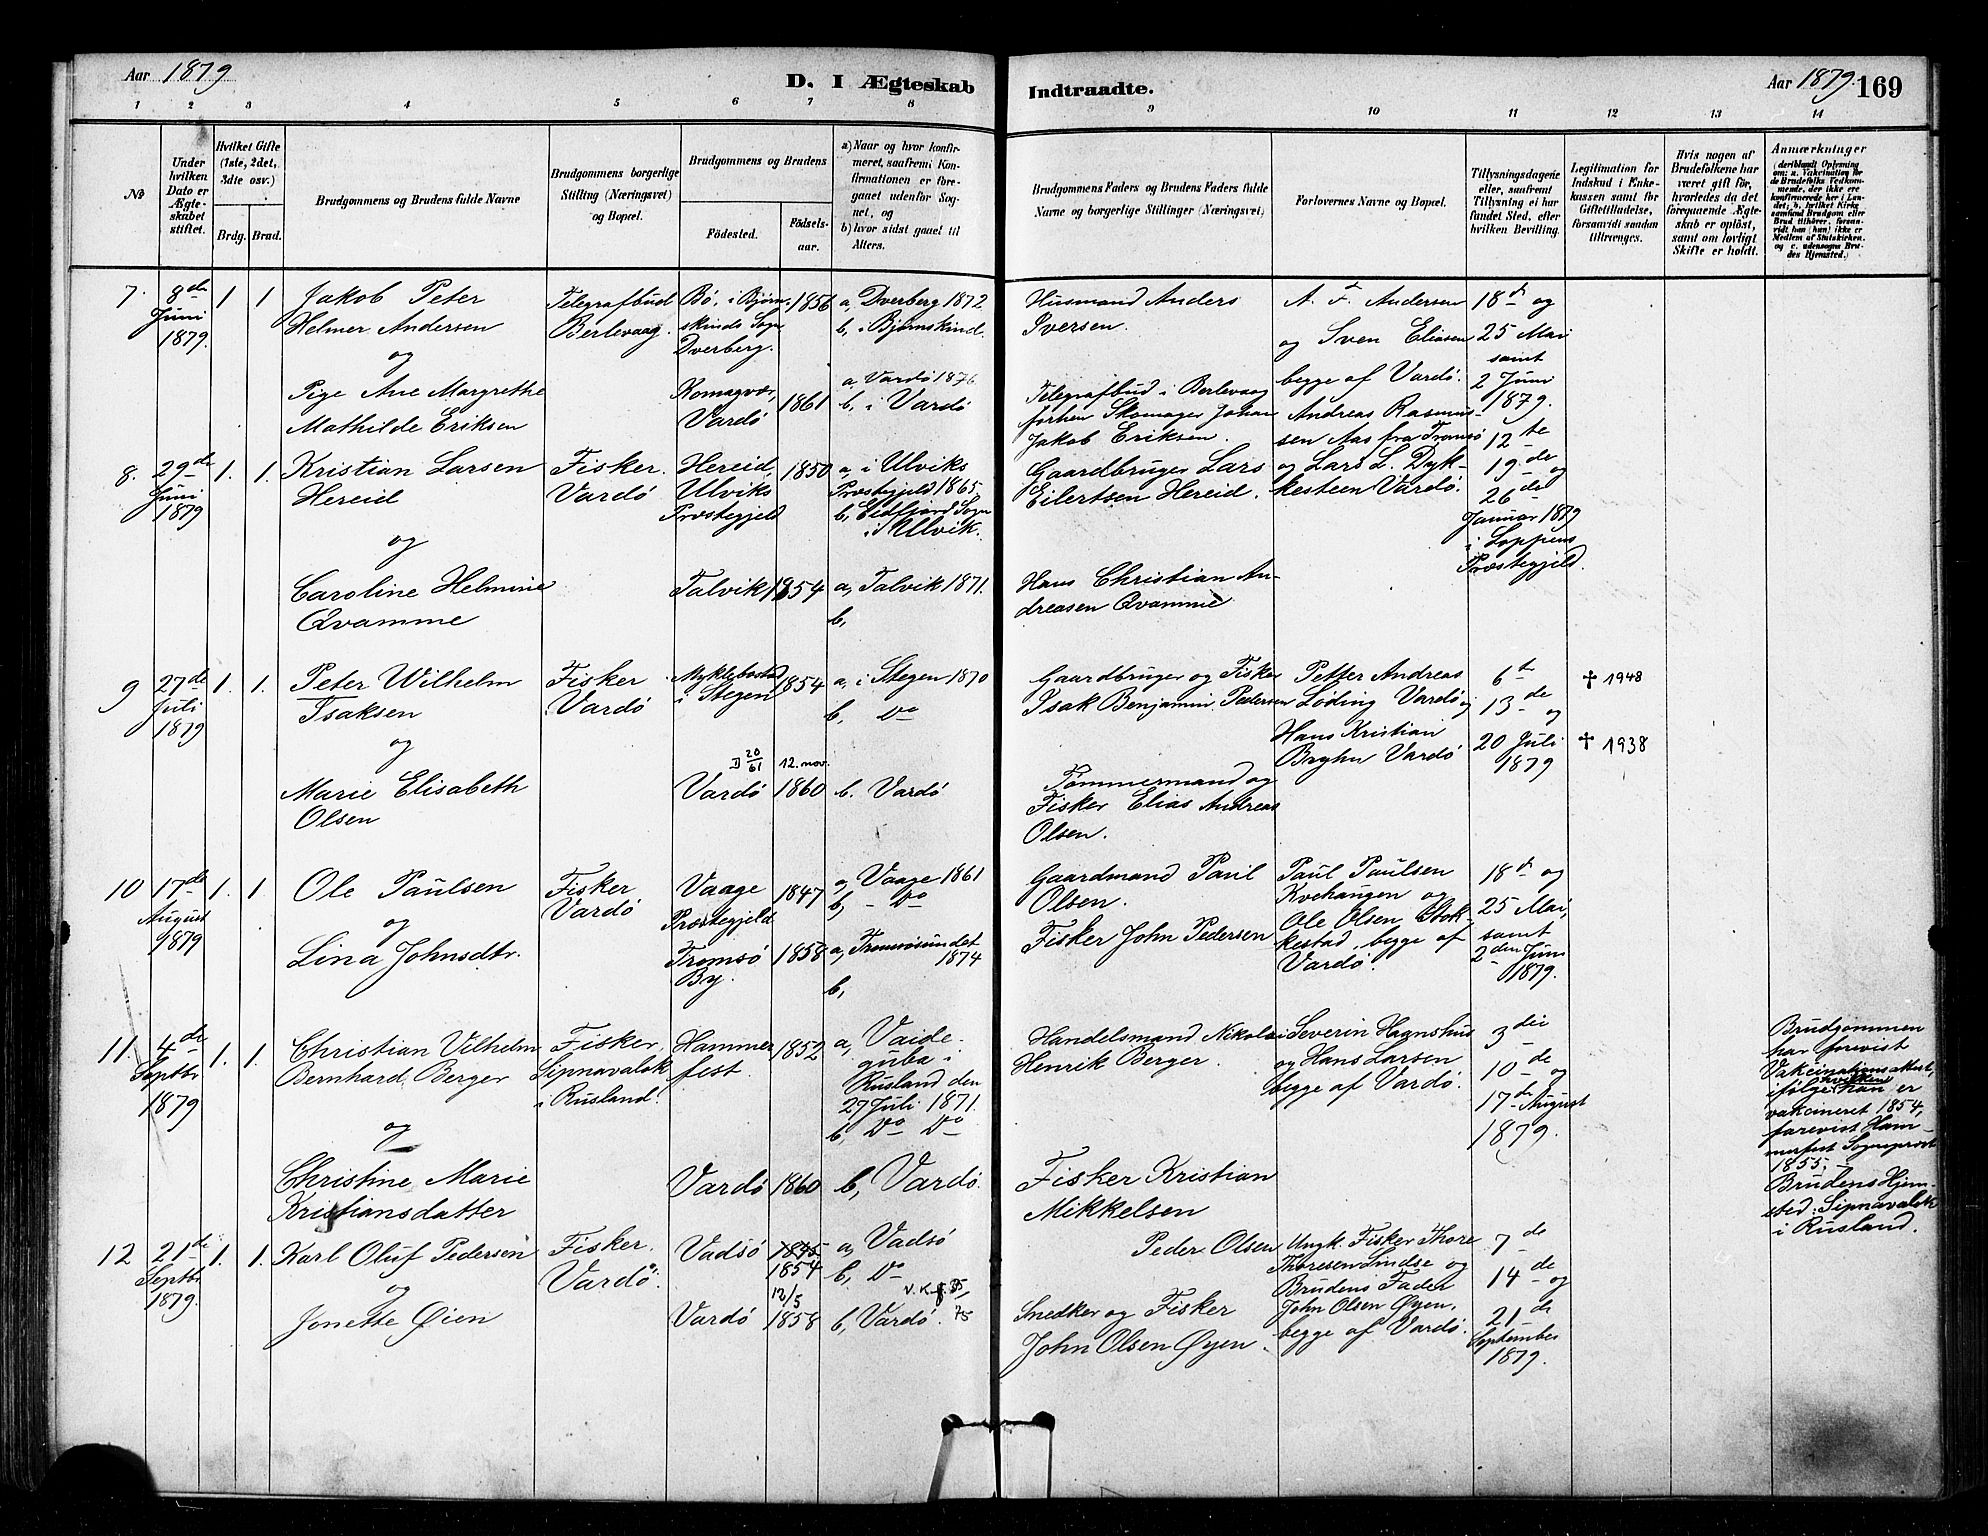 Aar 1879
D. I Ægteskab
Indtraadte.
Aar 1879. 169
1 2 3 4 5 6 7 8 9 10 11 12 13 14
No
Under hvilken Dato er Ægteskabet stiftet.
Hvilket Gifte (1ste, 2det, 3die osv.)
Brdg. Brud.
Brudgommens og Brudens fulde Navne
Brudgommens borgerlige Stilling (Næringsvei) og Bopæl.
Brudgommens og Brudens
Fødested.
Fødselsaar.
a) Naar og hvor konfirmeret, saafremt Konfirmationen er foregaaet udenfor Sognet, og
b) hvor sidst gaaet til Alters.
Brudgommens Faders og Brudens Faders fulde Navne og borgerlige Stillinger (Næringsvei)
Forlovernes Navne og Bopæl.
Tillysningsdagene eller, saafremt Tillysning ei har fundet Sted, efter hvilken Bevilling.
Legitimation for Indskud i Enkekassen samt for Giftetilladelse, forsaavidt saadan tiltrænges.
Hvis nogen af Brudefolkene har været gift før, hvorledes da det foregaaende Ægteskab er opløst, samt om lovligt Skifte er holdt.
Anmærkninger
(deriblandt Oplysning om: a. Vakcination for de Brudefolks Vedkommende, der ikke ere konfirmerede her i Landet; b. hvilket Kirkesamfund Brudgom eller Brud tilhører, forsaavidt han (hun) ikke er Medlem af Statskirken, og c. udensogns Brudes Hjemsted.)
7. 8de Juni 1879. 1 1
Jakob Peter
Helmer Andersen
og
Pige Ane Margrethe
Mathilde Eriksen
Telegrafbud
Berlevaag.
Bø, i Bjørn-
skinds Sogn
Dverberg.
1856
a, Dverberg 1872
b, i Bjørnskind.
Komagvær,
Vardø
1861
a, Vardø 1876
b, i Vardø
Husmand Anders
Iversen.
Telegrafbud i Berlevaag
forhen Skomager Johan
Jakob Eriksen.
A. F. Andersen
og Sven Eliasen
begge af Vardø.
18de og
25 Mai
samt
2 Juni
1879.
8. 29de Juni 1879 1. 1.
Kristian Larsen
Hereid
og
Caroline Helmine
Qvamme
Fisker.
Vardø
Hereid
Ulviks
Præstegjeld
1850
a, i Ulviks
Præstegjeld 1865.
b, Eidfjord Sogn
i Ulvik.
Talvik 1854
a, Talvik 1871.
b,
Gaardbruger Lars
Eilertsen Hereid.
Hans Christian An-
dreasen Qvamme
Andreas Rasmus-
sen Aas fra Tromsø
og Lars L. Dyk-
kesteen Vardø.
12te
19de og
26de
Januar 1879
i Loppens
Præstegjeld.
9 27de Juli 1879 1. 1.
Peter Wilhelm
Isaksen
og
Marie Elisabeth
Olsen
Fisker
Vardø
Myklebostad
i Stegen
1854
a, i Stegen 1870
b, Do
D 20/61
Vardø
12. nov.
1860
b. Vardø
Gaardbruger og Fisker
Isak Benjamin Pedersen
Tømmermand og
Fisker Elias Andreas
Olsen.
Petter Andreas
Løding Vardø og
Hans Kristian
Bryhn Vardø
6te
13de og
20 Juli
1879
✝ 1948
✝ 1938
10 17de August 1879 1. 1.
Ole Paulsen
og
Lina Johnsdtr.
Fisker
Vardø
Vaage
Præstegjeld
1847
a, Vaage 1861
b, - Do
Tromsø
By.
1858
a, Tromsøsundet
1874
b,
Gaardmand Paul
Olsen.
Fisker John Pedersen
Paul Paulsen
Kvehaugen og
Ole Olsen Stok-
kestad, begge af
Vardø.
18de og
25 Mai,
samt
2den Juni
1879.
11. 4de Septbr 1879 1. 1.
Christian Vilhelm
Bernhard Berger
og
Christine Marie
Kristiansdatter
Fisker,
Sipnavalok
i Rusland.
Hammer-
fest.
1852
a, Vaide-
guba i
Rusland den
27 Juli 1871.
b, Do Do
Vardø 1860
b, Vardø.
Handelsmand Nikolai
Henrik Berger.
Fisker Kristian
Mikkelsen
Severin Hagnshus
og Hans Larsen
begge af Vardø.
3die
10de og
17de August
1879.
Brudgommen
har forevist
Vakcinationsattest,
ifølge hvilken han er
vakcineret 1854,
forevist Ham-
merfest Sognepræst
1855. -
Brudens Hjem-
sted: Sipnavalok
i Rusland.
12 21de Septbr 1879. 1. 1.
Karl Oluf Pedersen
og
Jonette Øien
Fisker.
Vardø.
Vadsø
1845
1854
a, Vadsø
b, Do
Vardø
12/5
1858
b, Vardø.
75
Peder Olsen
Snedker og Fisker
John Olsen Øyen.
Ungk. Fisker Thore
Thoresen Lindse og
Brudens Fader
John Olsen Øyen,
begge af Vardø.
7de
14de og
21de
September
1879.